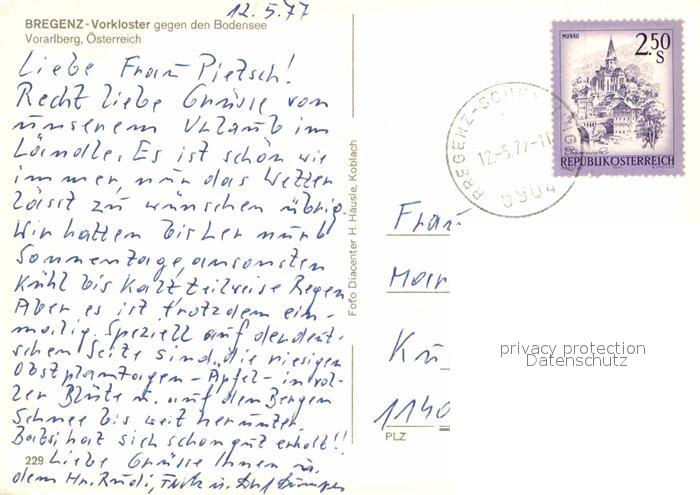 12.5.77
BREGENZ - Vorkloster gegen den Bodensee
Vorarlberg, Österreich
Liebe Frau Pietsch!
Recht liebe Grüsse von
unserem Urlaub im
Ländle. Es ist schön wie
immer, nur das Wetter
lässt zu wünschen übrig.
Wir hatten bisher nur 6
Sonnentage, ansonsten
kühl bis kalt teilweise Regen
Aber es ist trotzdem ein-
malig. Speziell auf der deut-
schen Seite sind die riesigen
Obstplantagen - Äpfel - in vol-
ler Blüte u. auf den Bergen
Schnee bis weit herunter.
hat sich schon gut erholt!!
229 Liebe Grüsse Ihnen u.
dem Hn. Rudi, Fritz u.
Foto Diacenter H. Häusle, Koblach
MURAU
2.50
S
REPUBLIK ÖSTERREICH
BREGENZ-
12.-5.77-11
6904
Frau
Mar
Ku
1140
PLZ
privacy protection
Datenschutz